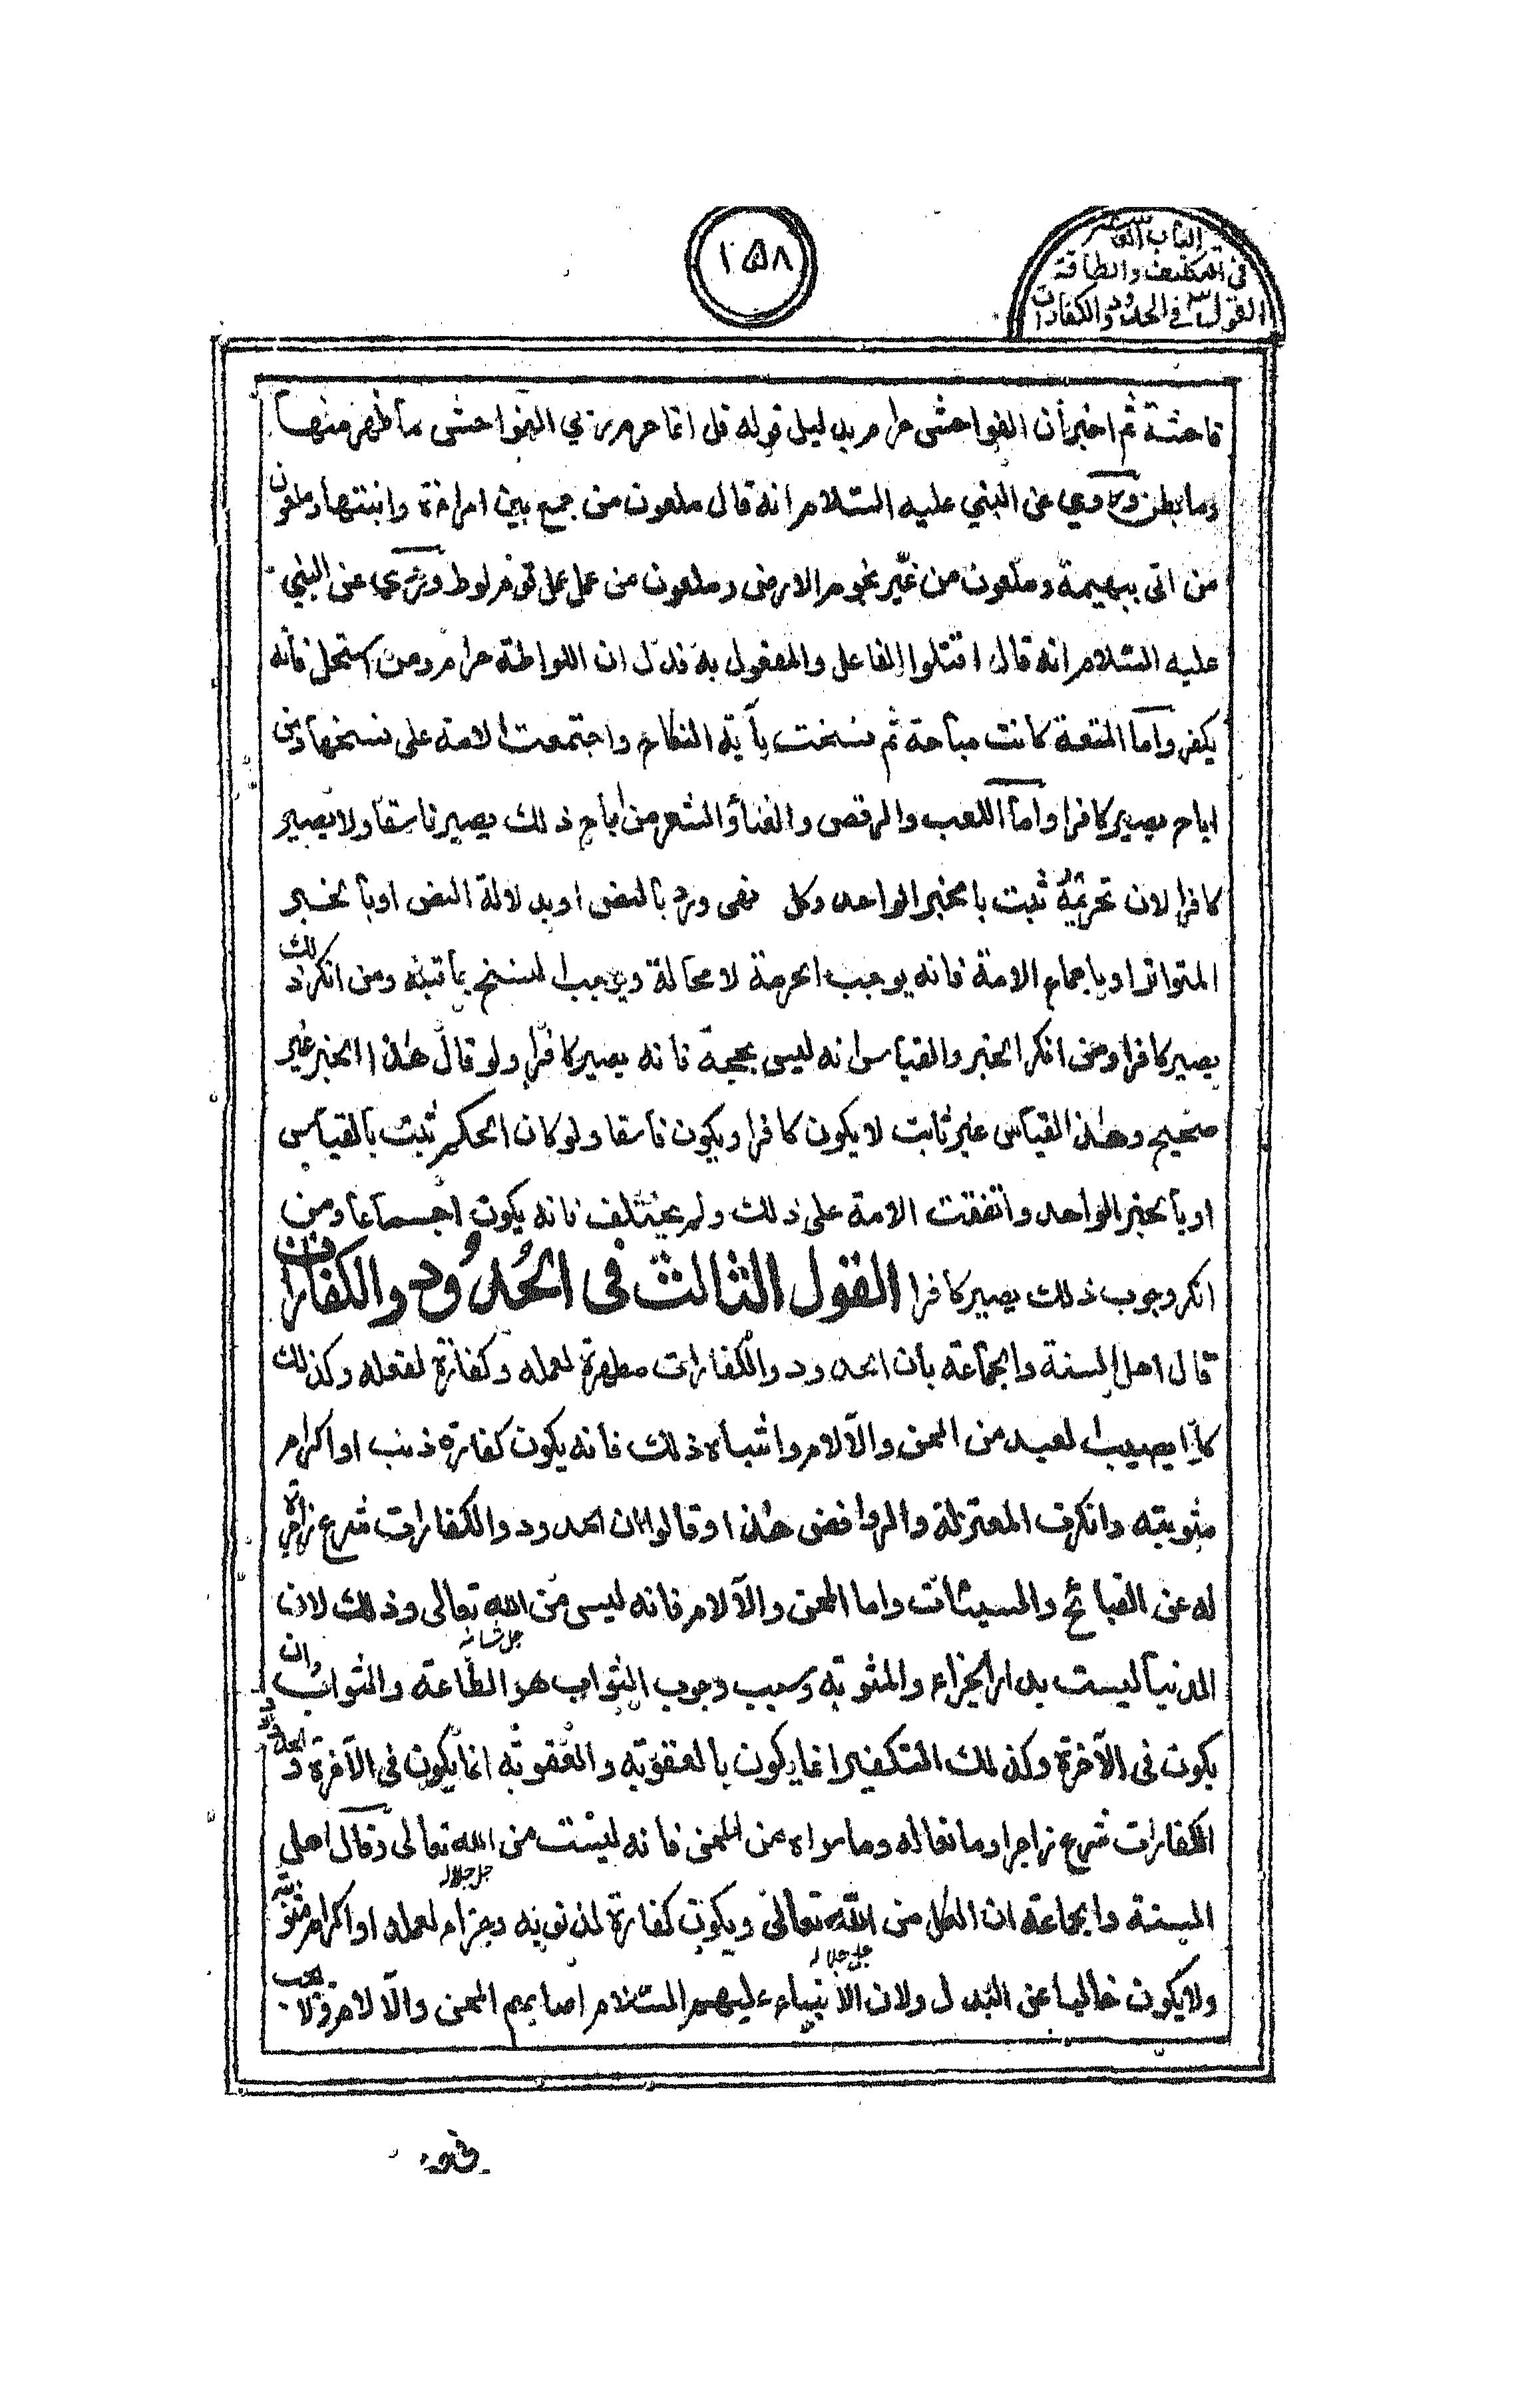 الباب السادس عشر
في التكليف والطاقة
القول ٣ في الحدود والكفارات
١٥٨
فاحشة ثم اخبر بأن الفواحش حرام بدليل قوله قل انما حرم ربي الفواحش ما ظهر منها
وما بطن وروي عن النبي عليه السلام انه قال ملعون من جمع بين امراءة وابنتها وملعون
من اتى ببهيمة وملعون من غيّر نجوم الارض وملعون من عمل عمل قوم لوط وروي عن النبي
عليه السلام انه قال اقتلوا الفاعل والمفعول به فدل ان اللواطة حرام ومن استحل فانه
يكفر واما المتعة كانت مباحة ثم نسخت بآية النكاح واجتمعت الامة على نسخها ومن
اباح يصير كافرا واما اللعب والرقص والغناؤ الشعر من اباح ذلك يصير فاسقا ولا يصير
كافرا لان تحريمه ثبت بالخبر الواحد وكل نهى ورد بالنص او بدلالة النص او بالخبر
المتواتر او باجماع الامة فانه يوجب الحرمة لا محالة ويوجب النسخ ومن انكر ذلك
يصير كافرا ومن انكر الخبر والقياس انه ليس بحجة فانه يصير كافرا ولو قال هذا الخبر غير
صحيح وهذا القياس غير ثابت لا يكون كافرا ويكون فاسقا ولو كان الحكم ثبت بالقياس
او بالخبر الواحد واتفقت الامة على ذلك ولم يختلف فانه يكون اجماعا ومن
انكر وجوب ذلك يصير كافرا القول الثالث في الحُدُود والكفارات
قال اهل السنة والجماعة بأن الحدود والكفارات مطهرة لعمله وكفارة لفعله وكذلك
كل ما يصيب العبد من المحن والآلام واشباه ذلك فانه يكون كفارة ذنب او اكرام
مثوبته وانكرت المعتزلة والروافض هذا وقالوا ان الحدود والكفارات شرع زاجرة
له عن القبائح والسيئات واما المحن والآلام فانه ليس من الله تعالى وذلك لان
جل شانه
الدنيا ليست بدار الجزاء والمثوبة وسبب وجوب الثواب هو الطاعة والثواب وان
يكون في الآخرة وكذلك التكفير انما يكون بالعقوبة والعقوبة انما يكون في الآخرة و
الكفارات شرع زاجرا وما سواه من المحن فانه ليست من الله تعالى وقال اهل
جل جلاله
السنة والجماعة ان الكل من الله تعالى ويكون كفارة لذنوبه وجزاء لعمله او اكرام مثوبة
جل جلاله
ولا يكون خاليا عن البدل ولان الانبياء عليهم السلام اصابهم المحن والآلام ولا يجب